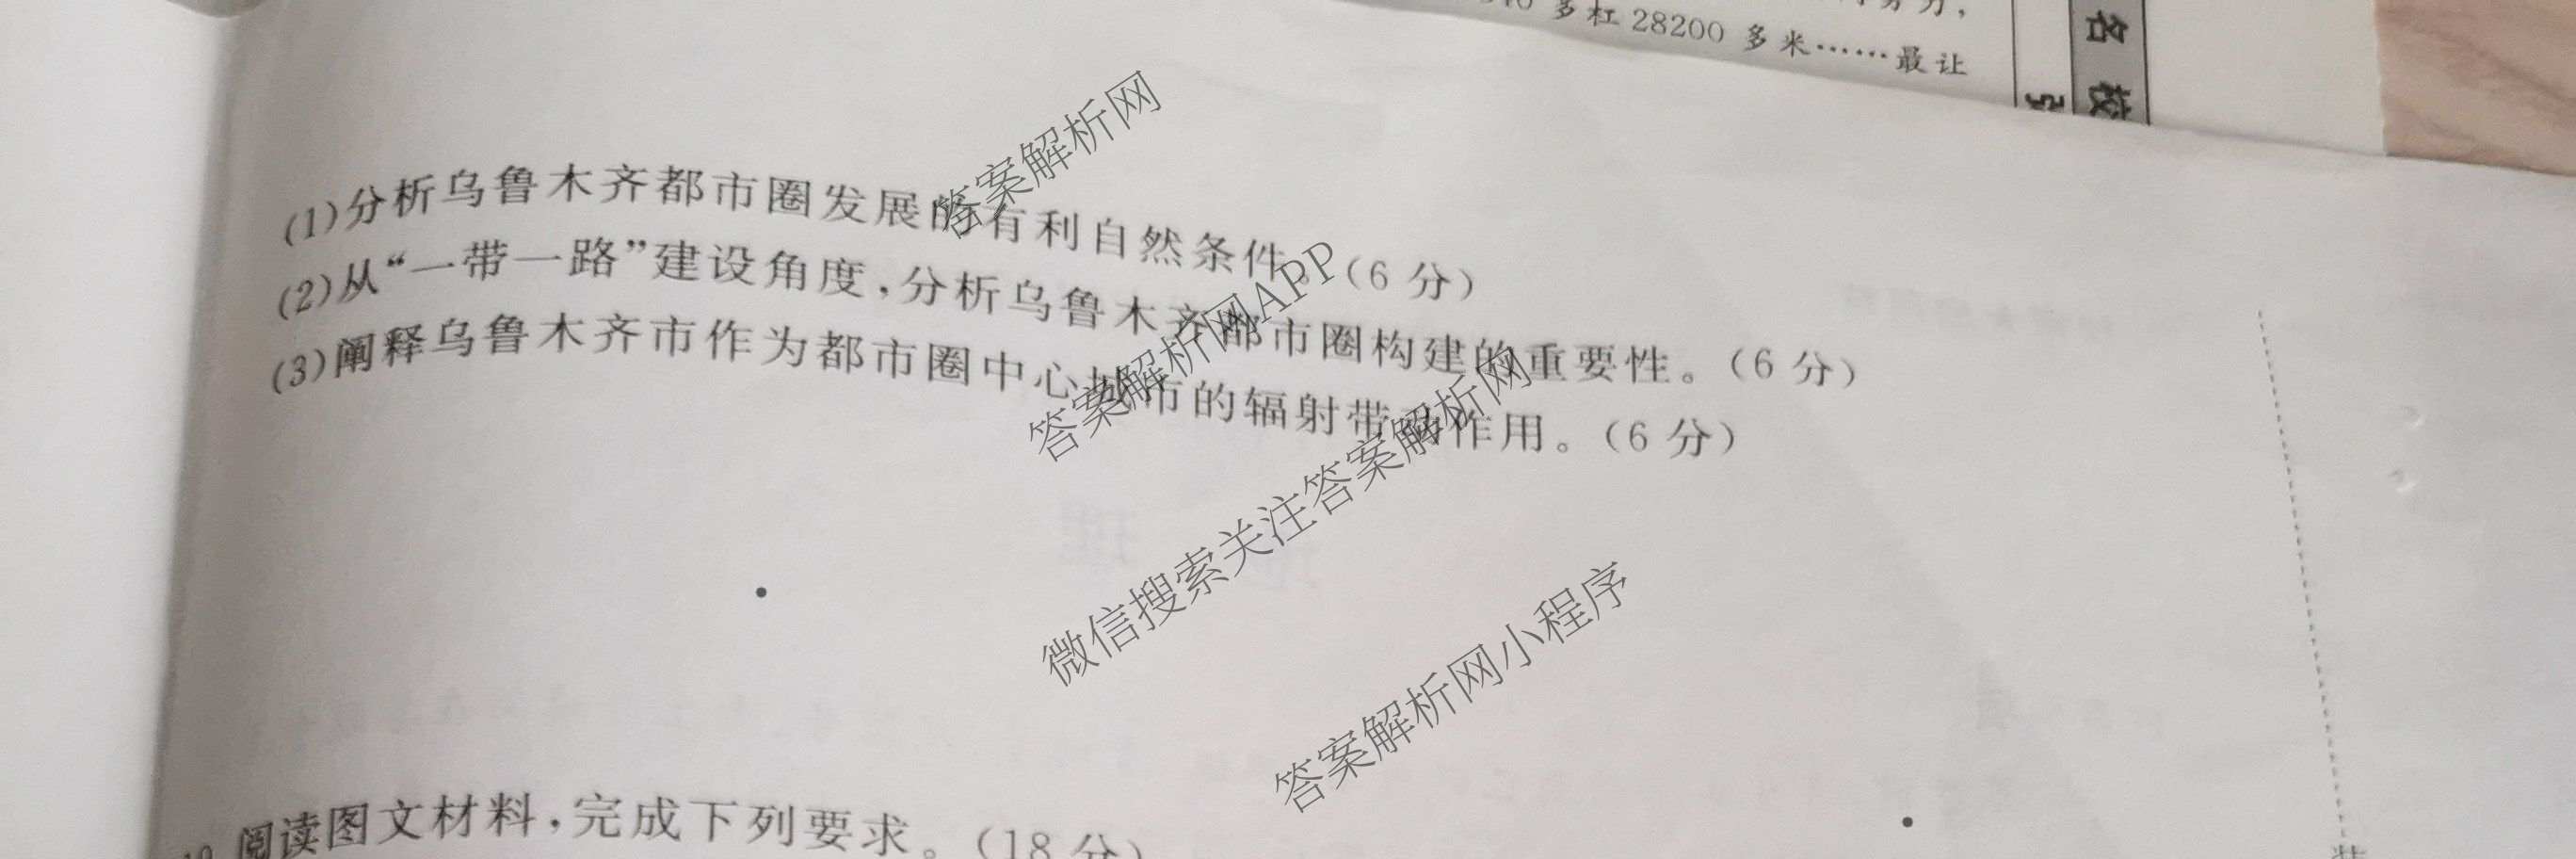 多杠 28200 多米……最让
名校
(1)分析乌鲁木齐都市圈发展的有利自然条件。(6 分)
(2)从“一带一路”建设角度,分析乌鲁木齐都市圈构建的重要性。(6 分)
(3)阐释乌鲁木齐市作为都市圈中心城市的辐射带动作用。(6 分)
阅读图文材料,完成下列要求。(18 分)
答案解析网
答案解析网APP
微信搜索关注答案解析网
答案解析网小程序